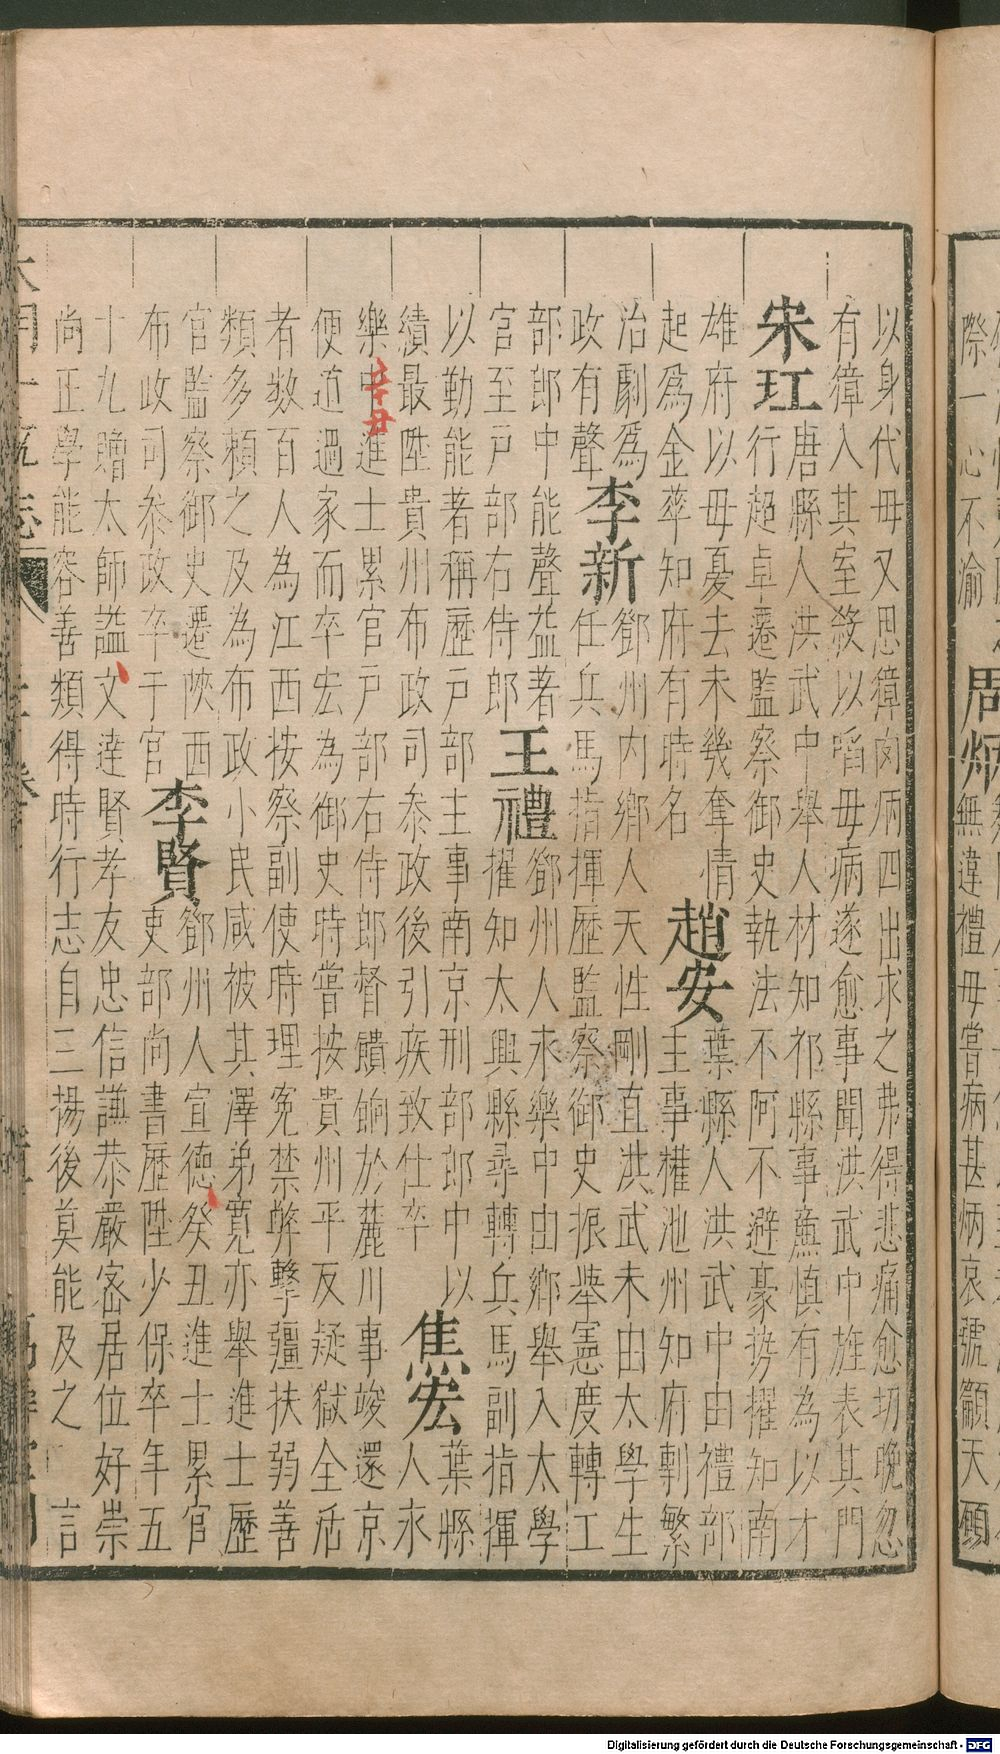 以身代母又思獐肉炳四出求之弗得悲痛愈切晚忽
有獐入其室殺以㗖母病遂愈事聞洪武中旌表其門
宋玒 唐縣人洪武中舉人材知祁縣事廉慎有為以才
行超卓遷監察御史執法不阿不避豪勢擢知南
雄府以母憂去未幾奪情
起爲金華知府有時名 趙安 葉縣人洪武中由禮部
主事權池州知府剸繁
治劇爲
政有聲 李新 鄧州内鄉人天性剛直洪武末由太學生
任兵馬指揮歷監察御史振舉憲度轉工
部郎中能聲益著
官至戸部右侍郎 王禮 鄧州人永樂中由鄉舉入太學
擢知太興縣尋轉兵馬副指揮
以勤能者稱歷戸部主事南京刑部郎中以
績最陞貴州布政司叅政後引疾致仕卒 焦宏 葉縣
人永
樂中進士累官戸部右侍郎督饋餉於麓川事竣還京
辛丑
便道過家而卒宏為御史時嘗按貴州平反疑獄全活
者数百人為江西按察副使時理冤禁弊擊彊扶弱善
類多頼之及為布政小民咸被其澤弟寛亦舉進士歷
官監察御史遷陜西
布政司叅政卒于官 李賢 鄧州人宣德癸丑進士累官
吏部尚書歷陞少保卒年五
十九贈太師謚文達賢孝友忠信謙恭嚴宻居位好崇
尚正學能容善類得時行志自三揚後莫能及之 言
際一
心不渝 周炳
無違禮母嘗病甚炳哀號籲天願
Digitalisierung gefördert durch die Deutsche Forschungsgemeinschaft - DFG